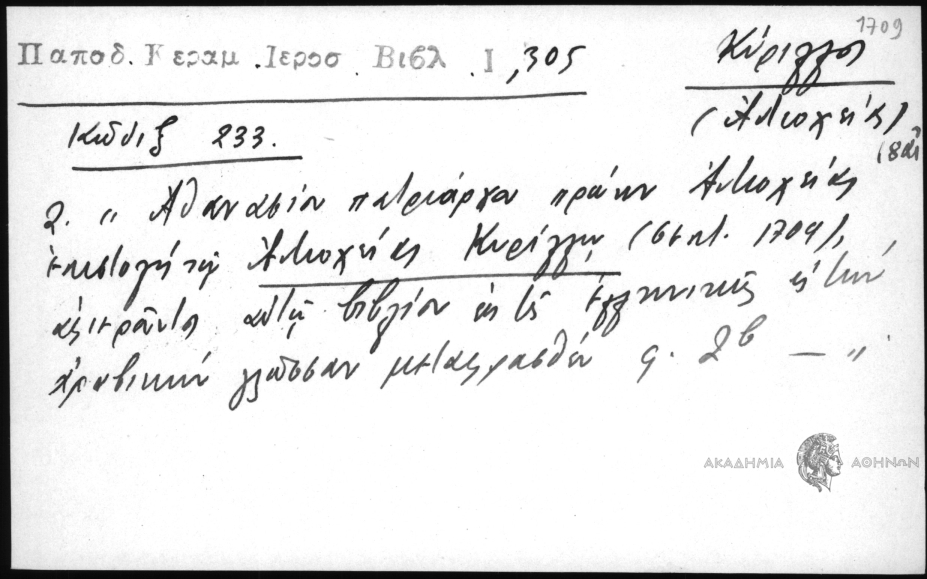 1709
Παποδ. Κεραμ. Ιεροσ Βιβλ. I, 305
Κύριλλος
(Ἀντιοχείας)
Κῶδιξ 233.
(8αι
2. " Ἀθανασίου πατριάρχου πρώην Ἀντιοχείας
ἐπιστολὴ τῷ Ἀντιοχείας Κυρίλλῳ, (Σεπτ. 1709),
ἀφιεροῦντος αὐτῷ βιβλίον ἐκ τῆς ἑλληνικῆς εἰς τὴν
ἀραβικὴν γλῶσσαν μεταφρασθὲν φ. 2β — "
ΑΚΑΔΗΜΙΑ ΑΘΗΝΩΝ